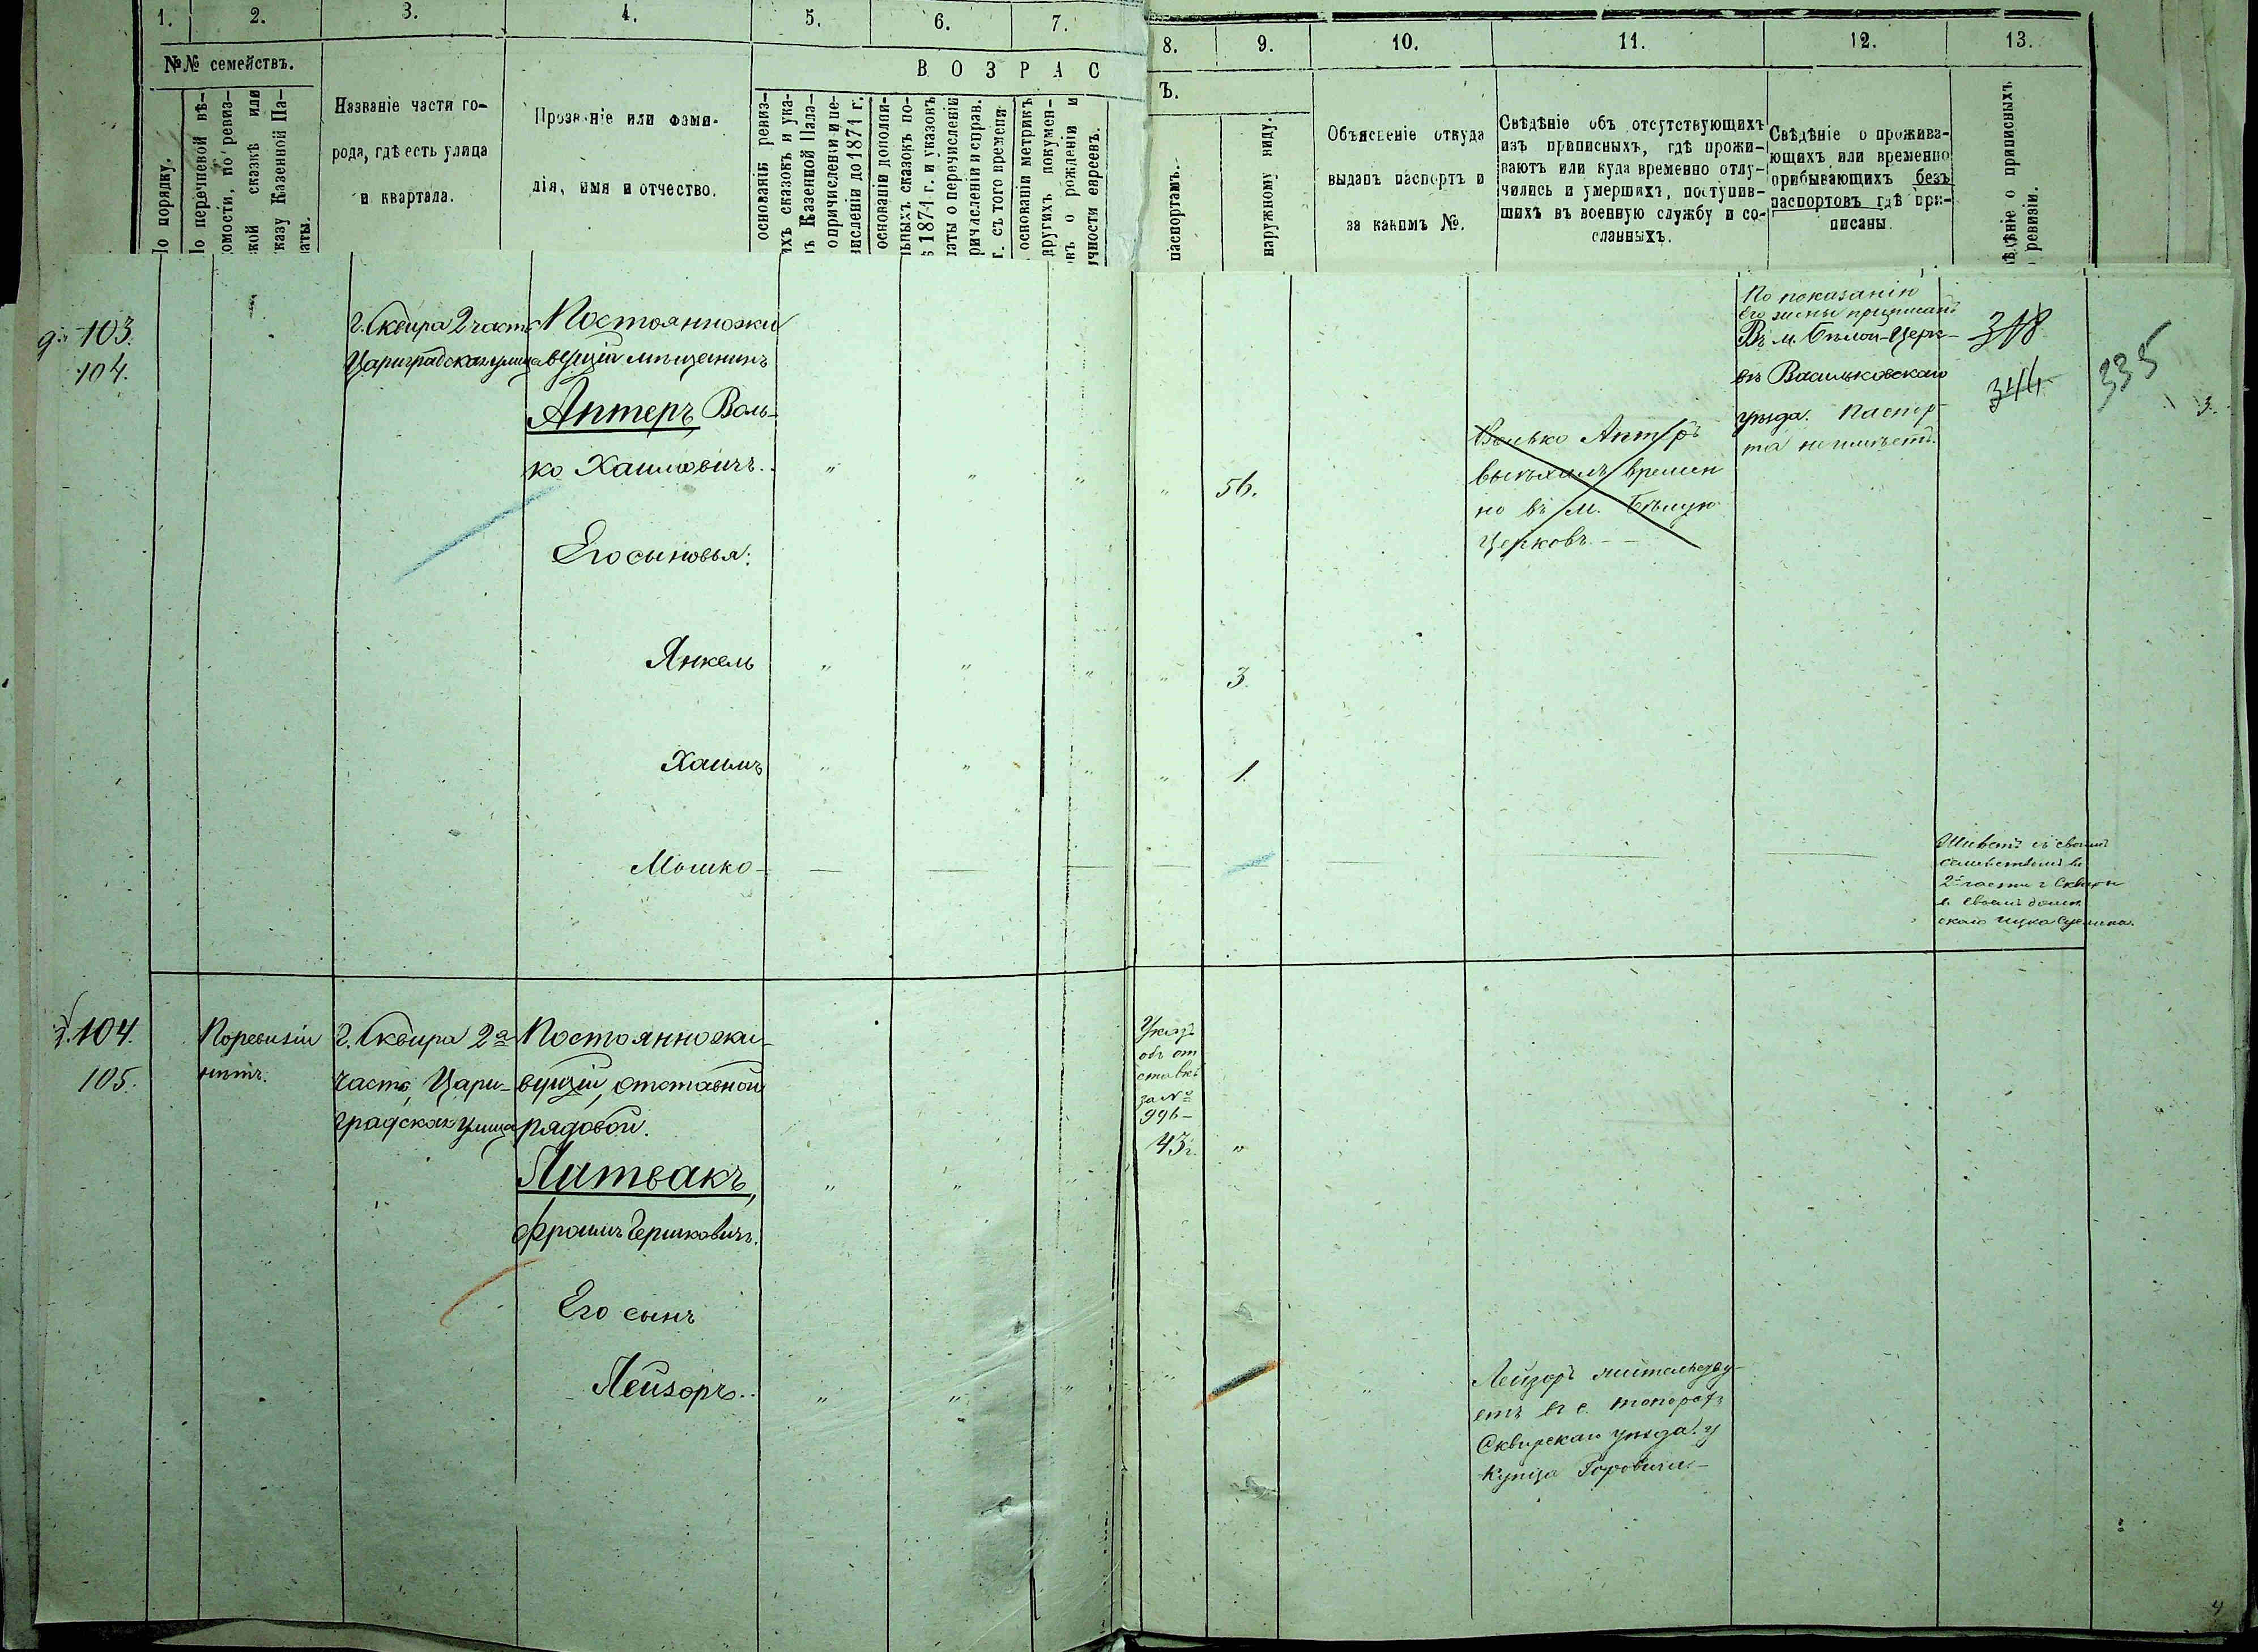 1. 2. 3. 4. 5. 6. 7.
8. 9. 10. 11. 12. 13.
№№ семействъ.
ВОЗРАС
Ъ.
По порядку.
По перечневой вѣ-
домости, по ревиз-
ской сказкѣ или
указу Казенной Па-
латы.
Названіе части го-
рода, гдѣ есть улица
и квартала.
Прозваніе или фами-
лія, имя и отчество.
основаніи ревиз-
ихъ сказокъ и ука-
въ Казенной Пала-
о причисленіи и пе-
числеліи до 1874 г.
основаніи дополни-
льныхъ сказокъ по-
ѣ 1874 г. и указовъ
латы о перечисленіи
причисленіи и справ.
г. съ того времени
основаніи метрикъ
другихъ докумен-
овъ о рожденіи и
ичности евреевъ.
паспортамъ.
наружному виду.
Объясненіе откуда
выданъ паспортъ и
за какимъ №.
Свѣдѣніе объ отсутствующихъ
изъ приписныхъ, гдѣ прожи-
ваютъ или куда временно отлу-
чились и умершихъ, поступив-
шихъ въ военную службу и со-
сланныхъ.
Свѣдѣніе о прожива-
ющихъ или временно
прибывающихъ безъ
паспортовъ гдѣ при-
писаны.
ѣдѣніе о приписныхъ
ревизіи.
103.
104.
г. Сквира 2 часть
Цариградская улица
Постоянножи
вущій мѣщанинъ
Аптеръ Воль-
ко Хаимовичъ.
56.
Волько Аптеръ
выѣхалъ времен
но въ м. Бѣлую
Церковь
По показанію
его жены приписанъ
Въ м. Бѣлой-Церк-
вѣ Васильковскаго
уѣзда. Паспор-
та неимѣетъ.
318
344
335
3.
Его сыновья:
Янкель
3
Хаимъ
1
Мошко
Живетъ съ своимъ
семействомъ въ
2й части г Сквиры
в своемъ домѣ
104.
105.
Поревизіи
нѣтъ.
г. Сквира 2я
часть, Цари-
градская улица
Постоянножи-
вущій, отставной
рядовой.
Литвакъ,
Фроимъ Гершковичъ.
Указъ
объ от
ставкѣ
за №
996-
43 г.
Его сынъ
Лейзоръ
Лейзоръ жительству-
етъ въ с. Топорахъ
Сквирскаго уѣзда у
Купца Горовица
4